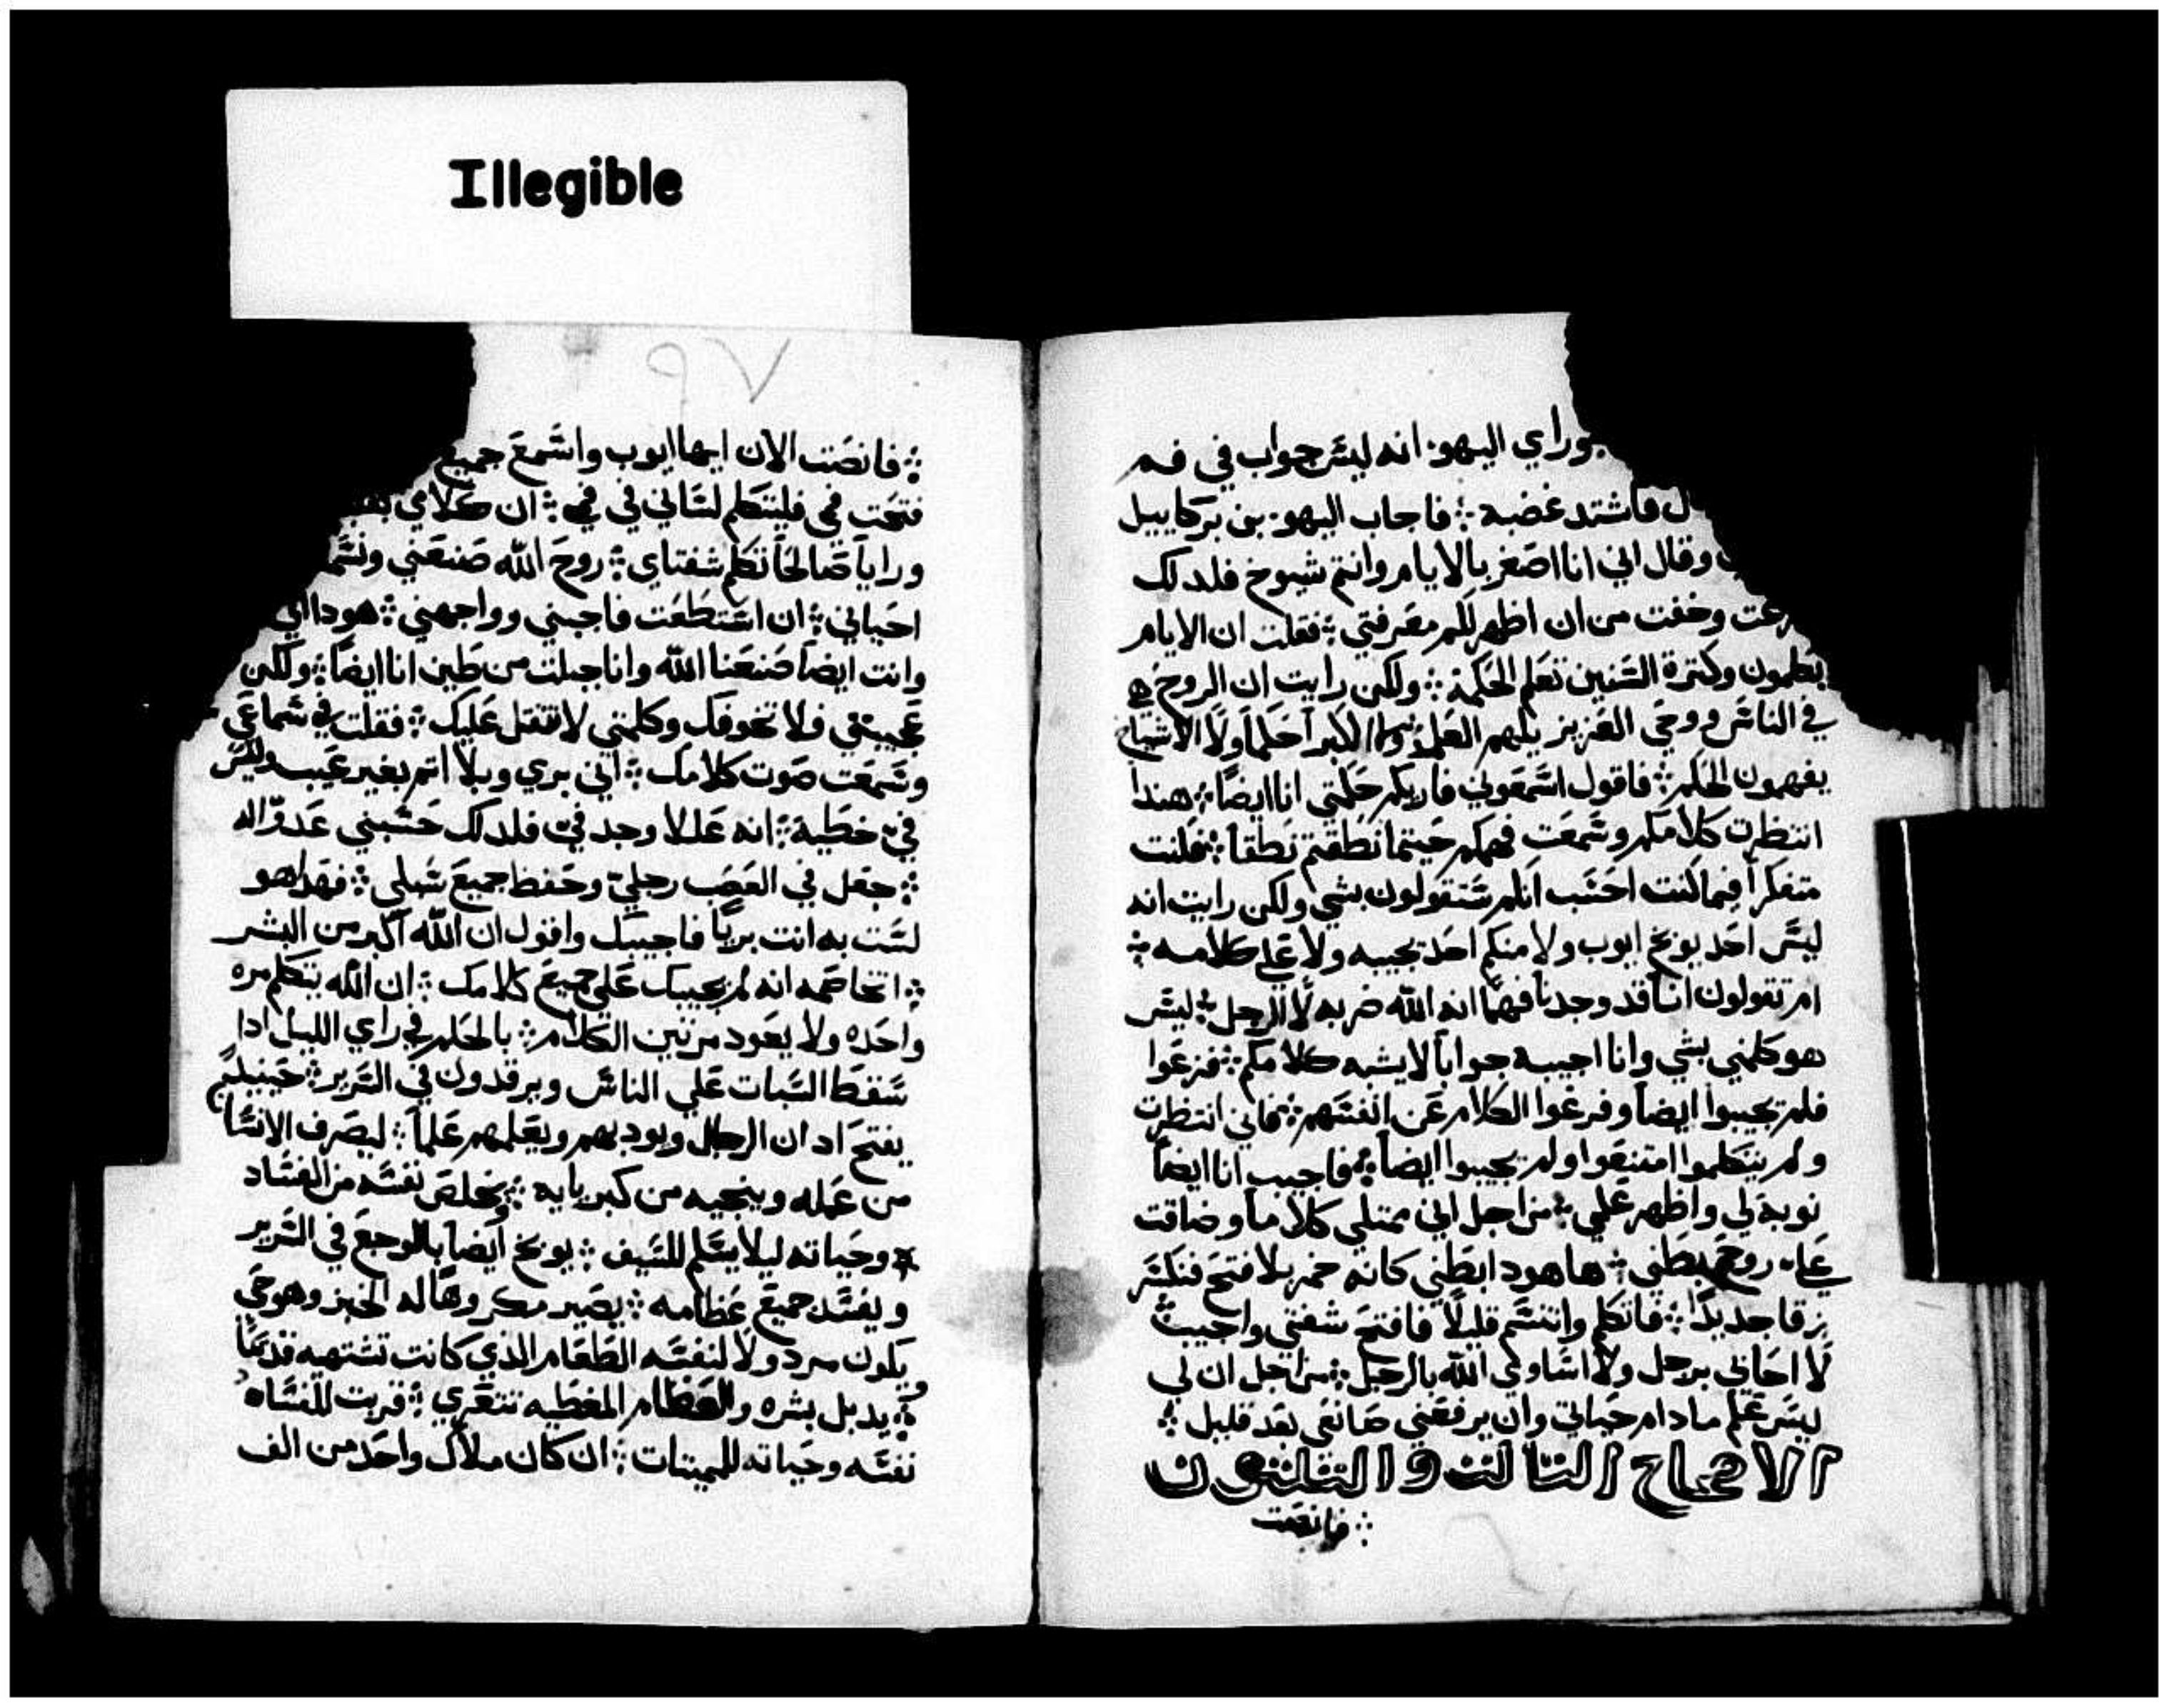 Illegible
وراي اليهو. انه ليس جواب في فم
فاشتد غضبه ⁘ فاجاب اليهو. بن بركاييل
وقال اني انا اصغر بالايام وانتم شيوخ فلدلك
وخفت من ان اظهر لكم معرفتي ⁘ فقلت ان الايام
وكترة السنين تعلم الحكمة ⁘ ولكن رايت ان الروح هي
في الناس ووحي العزيز يلهم العلم ولا الاشياخ
يفهمون الحكم ⁘ فاقول اسمعوني فاريكم حكمتي انا ايضاً ⁘ هندا
انتظرت كلامكم وسمعت فهمكم حيتما نطقتم نطقاً ⁘ فكنت
متفكراً فيما كنت احسب انكم ستقولون بشي ولكن رايت انه
ليس احد يوبخ ايوب ولا منكم احد يجيبه ولا علي كلامه ⁘
ام تقولون اننا قد وجدنا فهماً انه الله ضربه لا الرجل ⁘ ليس
هو كلمني بشي وانا اجيبه جواباً لا يشبه كلامكم ⁘ فزعوا
فلم يجيبوا ايضاً وفرغوا الكلام عن انفسهم ⁘ فاني انتظرت
ولم يتكلموا امتنعوا ولم يجيبوا ايضاً ⁘ فاجيب انا ايضاً
نوبة لي واظهر علمي ⁘ من اجل اني ممتلي كلاماً وضاقت
علي روح بطني ⁘ ها هودا بطني كانه خمر بلا فتح فتكسر
زقا جديدا ⁘ فاتكلم واتنسم قليلاً فافتح شفتي واجيب
لا احابي برجل ولا اساوي الله بالرجل ⁘ من اجل ان لي
ليس علم مادام حياتي وان يرفعني صانعي بعد قليل ⁘
الاصحاح التالت والتلتون
⁘ فانصت
٧٩
⁘ فانصت الان ايها ايوب واسمع جميع
فتحت فمي فليتكلم لساني في فمي ⁘ ان كلامي
ورايا صالحاً تكلم شفتاي ⁘ روح الله صنعني
احياني ⁘ ان استطعت فاجبني وواجهني ⁘ هودا اني
وانت ايضاً صنعنا الله وانا جبلت من طين انا ايضاً ⁘ ولكن
عجيبتي فلا تخوفك وكلمتي لا تتقل عليك ⁘ فقلت في سماعي
وسمعت صوت كلامك ⁘ اني بري وبلا اتم بغير عيب وليس
في خطية ⁘ انه عللا وجد في فلدلك حسبني عدوّا له
⁘ جعل في العصب رجلي وحفظ جميع سبلي ⁘ فهدا هو
لست به انت برياً فاجيبك واقول ان الله اكبر من البشر
⁘ اتخاصمه انه لم يجيبك علي جميع كلامك ⁘ ان الله يتكلم مره
واحده ولا يعود مرتين الكلام ⁘ بالحلم في راي الليل ادا
سقط السبات علي الناس ويرقدون في السرير ⁘ حينيد
يفتح ادان الرجال ويودبهم ويعلمهم علماً ⁘ ليصرف الانسا
من عمله وينجيه من كبريايه ⁘ يخلص نفسه من الفساد
⁘ وحياته ليلا يسلم للسيف ⁘ يوبخ ايضاً بالوجع في السرير
ويفسد جميع عظامه ⁘ يصير مكروهاً له الخبز وهو حي
يكون مردولا لنفسه الطعام الذي كانت تشتهيه قديماً
⁘ يدبل بشره والعظام المغطيه تتعري ⁘ قربت للفساد
نفسه وحياته للمميتات ⁘ ان كان ملاك واحد من الف